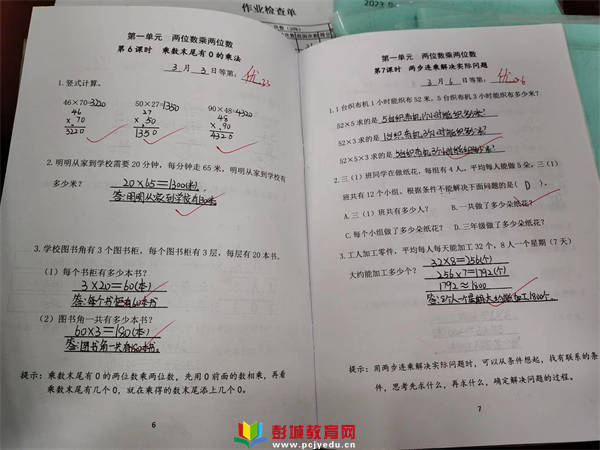 作业检查单
2023
第一单元 两位数乘两位数
第6课时 乘数末尾有0的乘法
3月3日等第： 优
1.竖式计算。
46×70=3220 50×27=1350 90×48=4320
46 27 48
×70 ×50 ×90
3220 1350 4320
2.明明从家到学校需要20分钟，每分钟走65米，明明从家到学校有
多少米？ 20×65=1300(米)
答:明明从家到学校有1300米
3.学校图书角有3个图书柜，每个图书柜有3层，每层有20本书。
（1）每个书柜有多少本书？
3×20=60(本)
答:每个书柜有60本书
（2）图书角一共有多少本书？
60×3=180(本)
答:图书角一共有180本书.
提示：乘数末尾有0的两位数乘两位数，先用0前面的数相乘，再看
乘数末尾有几个0，就在乘得的数末尾添上几个0。
6
第一单元 两位数乘两位数
第7课时 两步连乘解决实际问题
3月6日等第： 优
1.1台织布机1小时能织布52米，5台织布机3小时能织布多少米？
52×5求的是 5台织布机1小时能织多少米?
52×3求的是 1台织布机3小时能织多少米?
52×5×3求的是 5台织布机3小时能织多少米?
2.三（1）班同学在做纸花，每组有4人，平均每人能做8朵，三（1）
班共有12个小组，根据条件不能解决下面问题的是（ D ）。
A.三（1）班共有多少人？ B.一共做了多少朵纸花？
C.每个小组做了多少朵纸花？ D.三年级做了多少朵纸花？
3.工人加工零件，平均每人每天能加工32个，8人一个星期（7天）
大约能加工多少个？ 32×8=256(个)
256×7=1792(个)
1792≈1800
答:8个人一个星期大约能加工1800个.
提示：用两步连乘解决实际问题时，可以从条件想起，找有联系的条
件，思考先求什么，再求什么，确定解决问题的过程。
7
彭城教育网
www.pcjyedu.cn